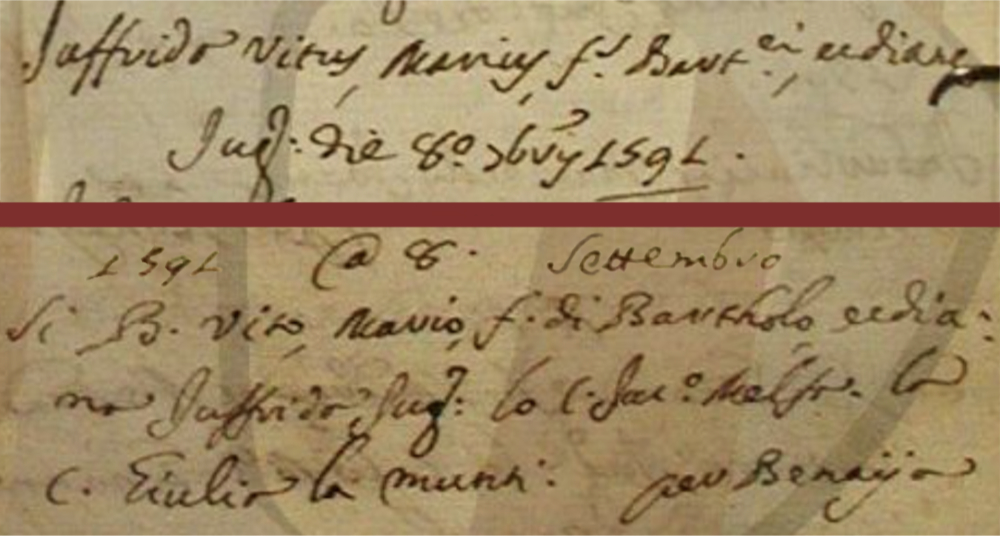 Juffrido Vitus, Marius, f.s Bart.ei, et diane
Jug: die 8º 7bris 1591.
1591 @ 8. Settembro
Si B. Vito, Mario, f. di Bartholo, e dia:
na Juffrida Jug: lo C. Jac.º la
C. Giulia la per